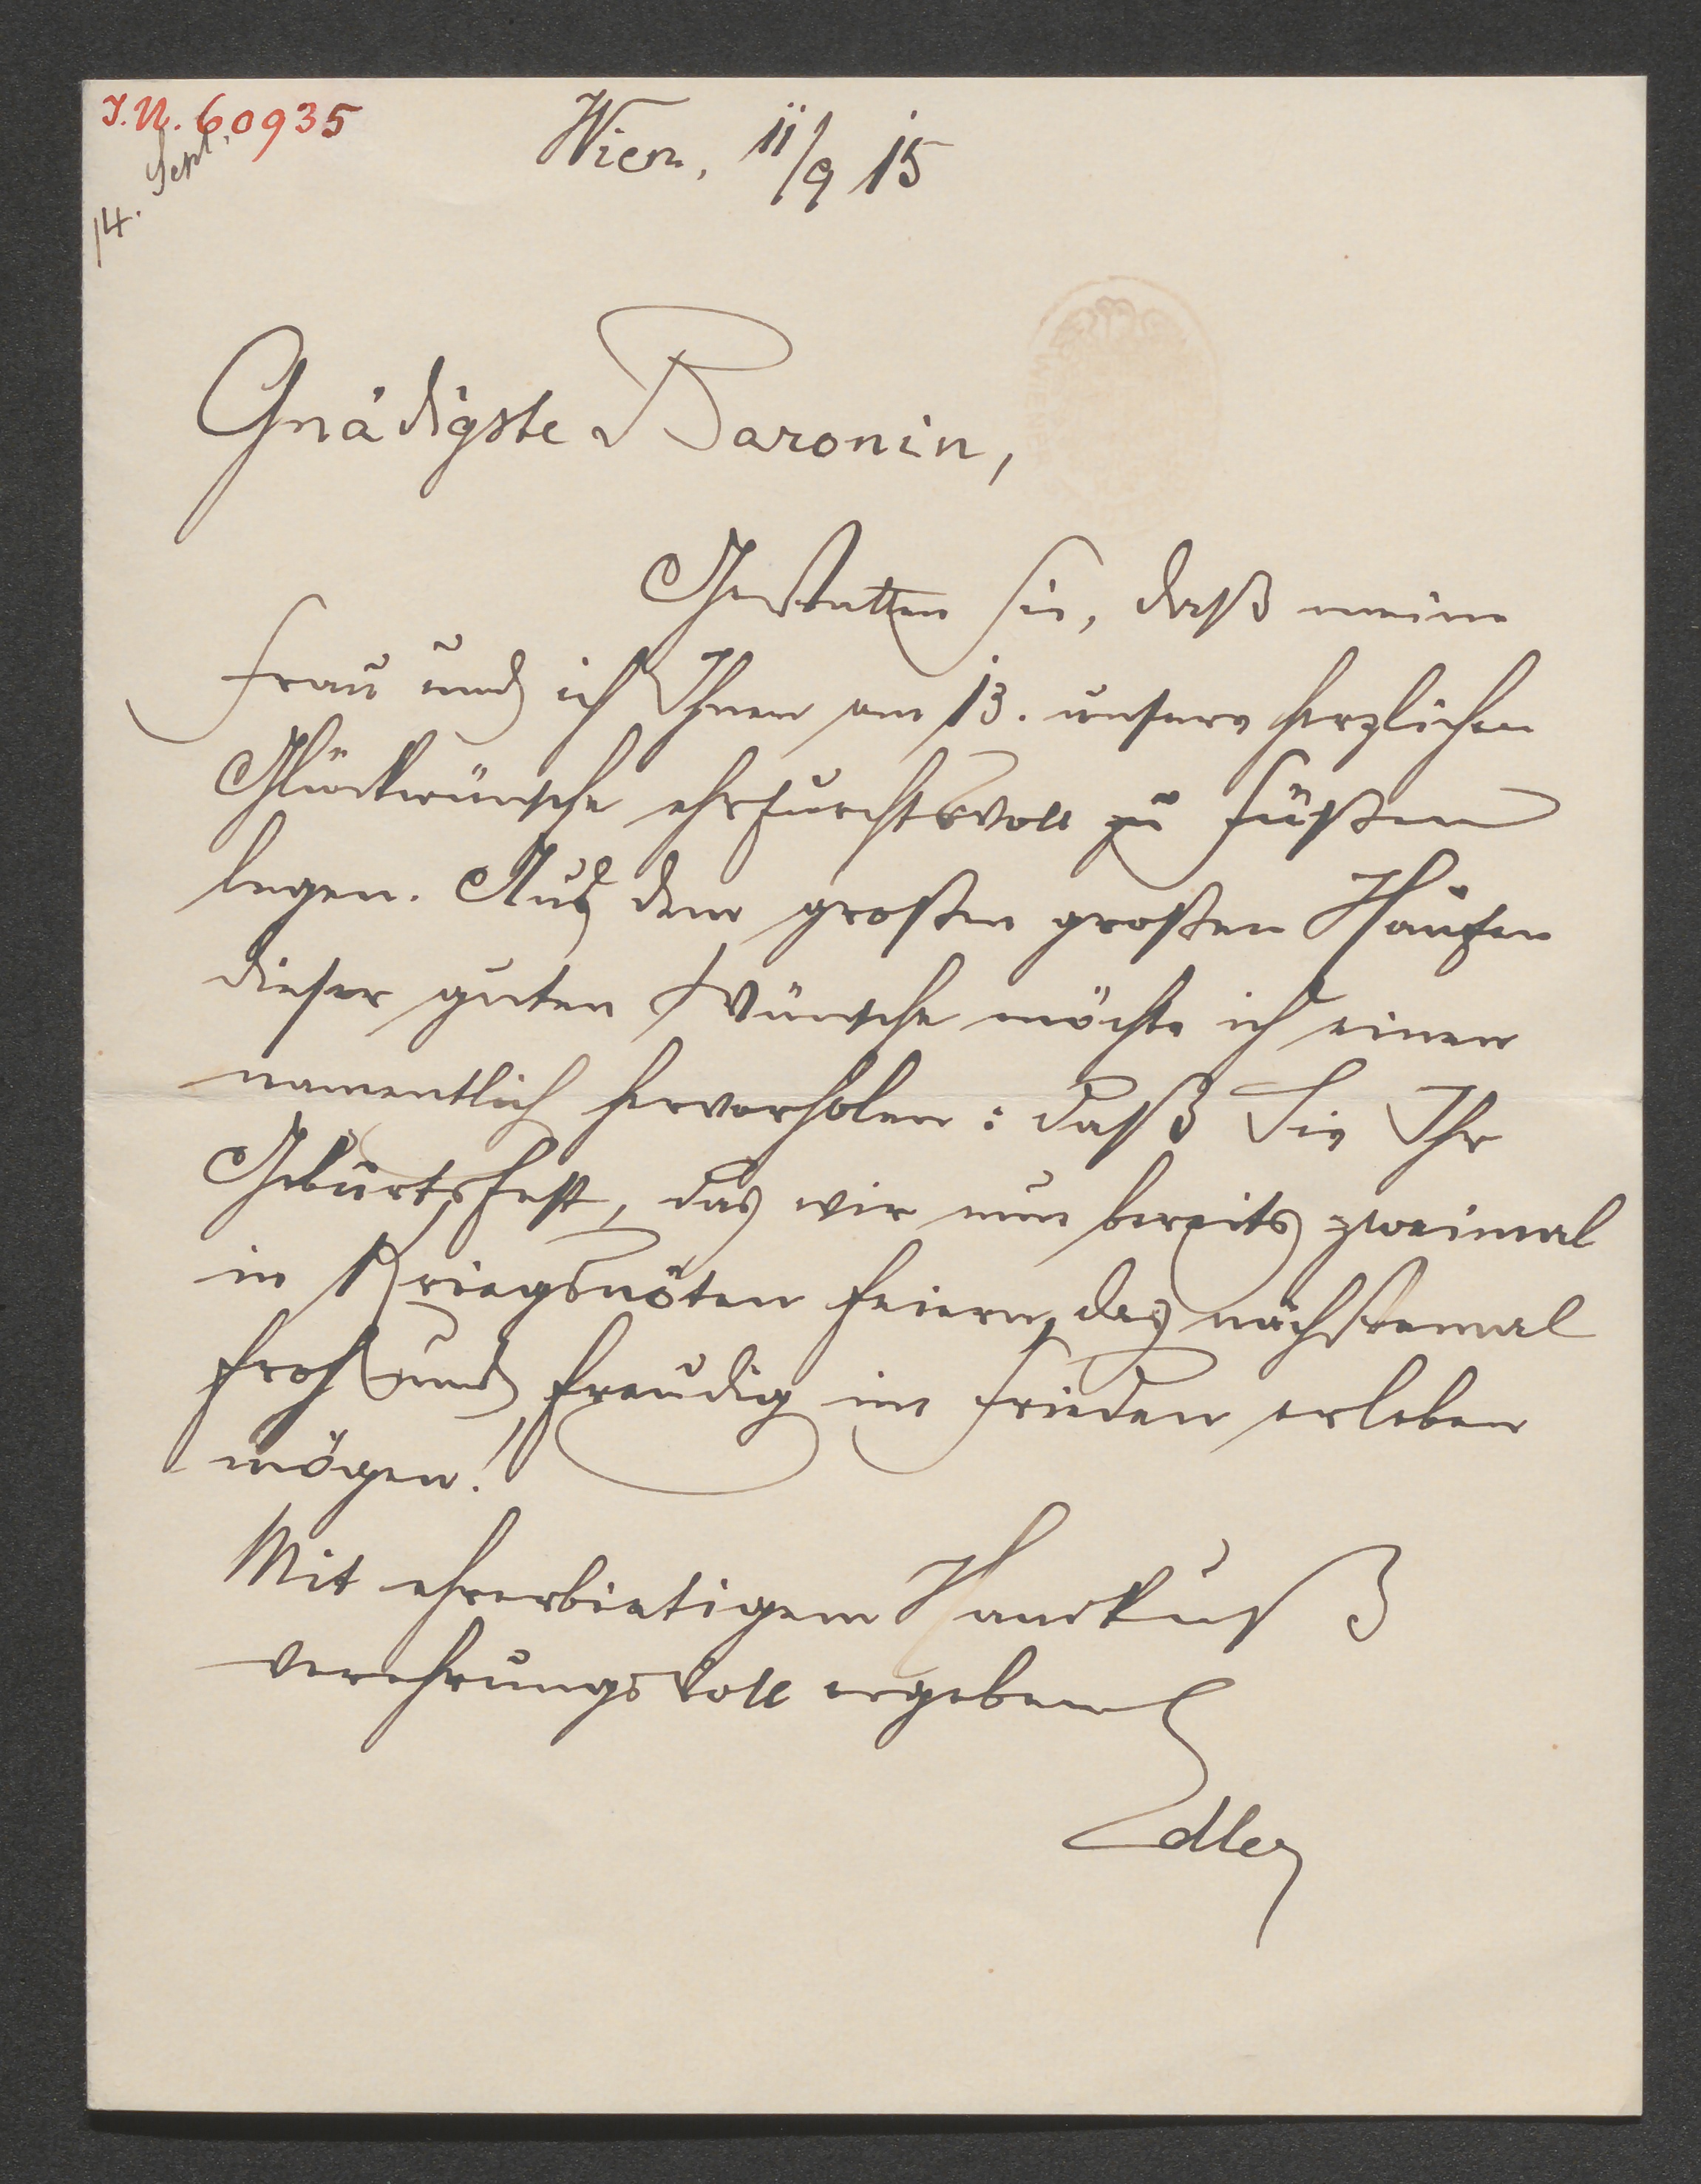 I.N. 60935
14. Sept.
Wien, 11/9 15
Gnädigste Baronin,
Gestatten Sie, daß meine
Frau und ich Ihnen am 13. unsere herzlichen
Glückwünsche ehrfurchtsvoll zu Füßen
legen. Aus dem großen großen Haufen
dieser guten Wünsche möchte ich einen
namentlich hervorholen: daß Sie Ihr
Geburtsfest, das wir nun bereits zweimal
in Kriegsnöten feiern, das nächstemal
froh und freudig im Frieden erleben
mögen!
Mit ehrerbietigem Handkuß
verehrungsvoll ergeben
Edler